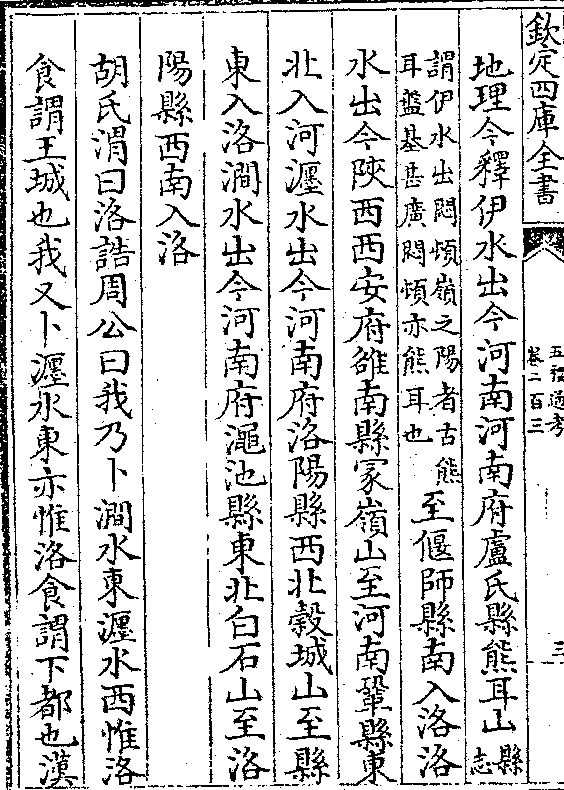 欽定四庫全書
五禮通考
卷二百三
三
地理今釋伊水出今河南河南府盧氏縣熊耳山縣志
謂伊水出悶頓嶺之陽者古熊
耳盤基甚廣悶頓亦熊耳也
至偃師縣南入洛洛
水出今陝西西安府雒南縣冢嶺山至河南鞏縣東
北入河瀍水出今河南府洛陽縣西北穀城山至縣
東入洛澗水出今河南府澠池縣東北白石山至洛
陽縣西南入洛
胡氏渭曰洛誥周公曰我乃卜澗水東瀍水西惟洛
食謂王城也我又卜瀍水東亦惟洛食謂下都也漢